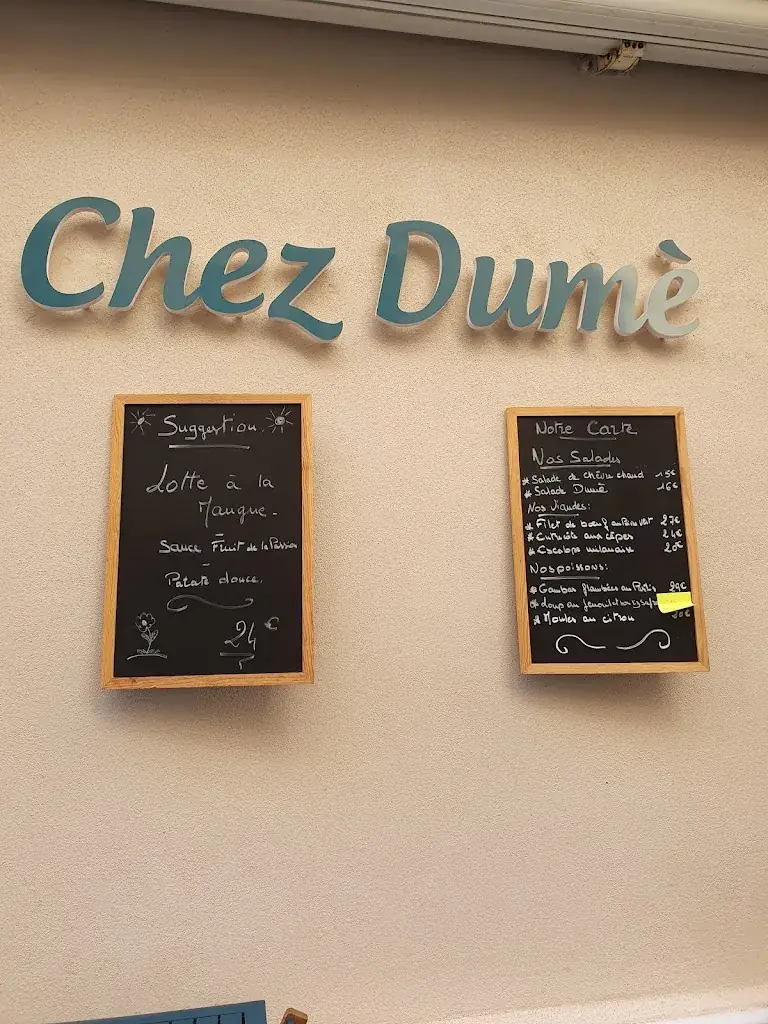 Chez Dumè
Suggestion.
Lotte à la
Mangue.
Sauce Fruit de la Passion
Patate douce.
24€
Notre Carte
Nos Salades
* Salade de chèvre chaud 15€
* Salade Dumè 16€
Nos Viandes:
* Filet de bœuf au Poivre vert 27€
* Entrecôte aux cèpes 24€
* Escalope milanaise 20€
Nos poissons:
* Gambas flambées au Pastis 29€
* Loup au fenouil
* Moules au citron 20€